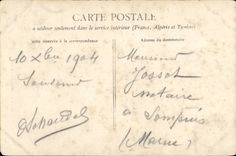 CARTE POSTALE
a utiliser seulement dans le service intérieur (France, Algérie et Tunisie)
Partie réservée à la correspondance
Adresse du destinataire
10 Xbre 1904
Souvenir
Monsieur
Jossot
notaire
a Sompuis
(Marne)